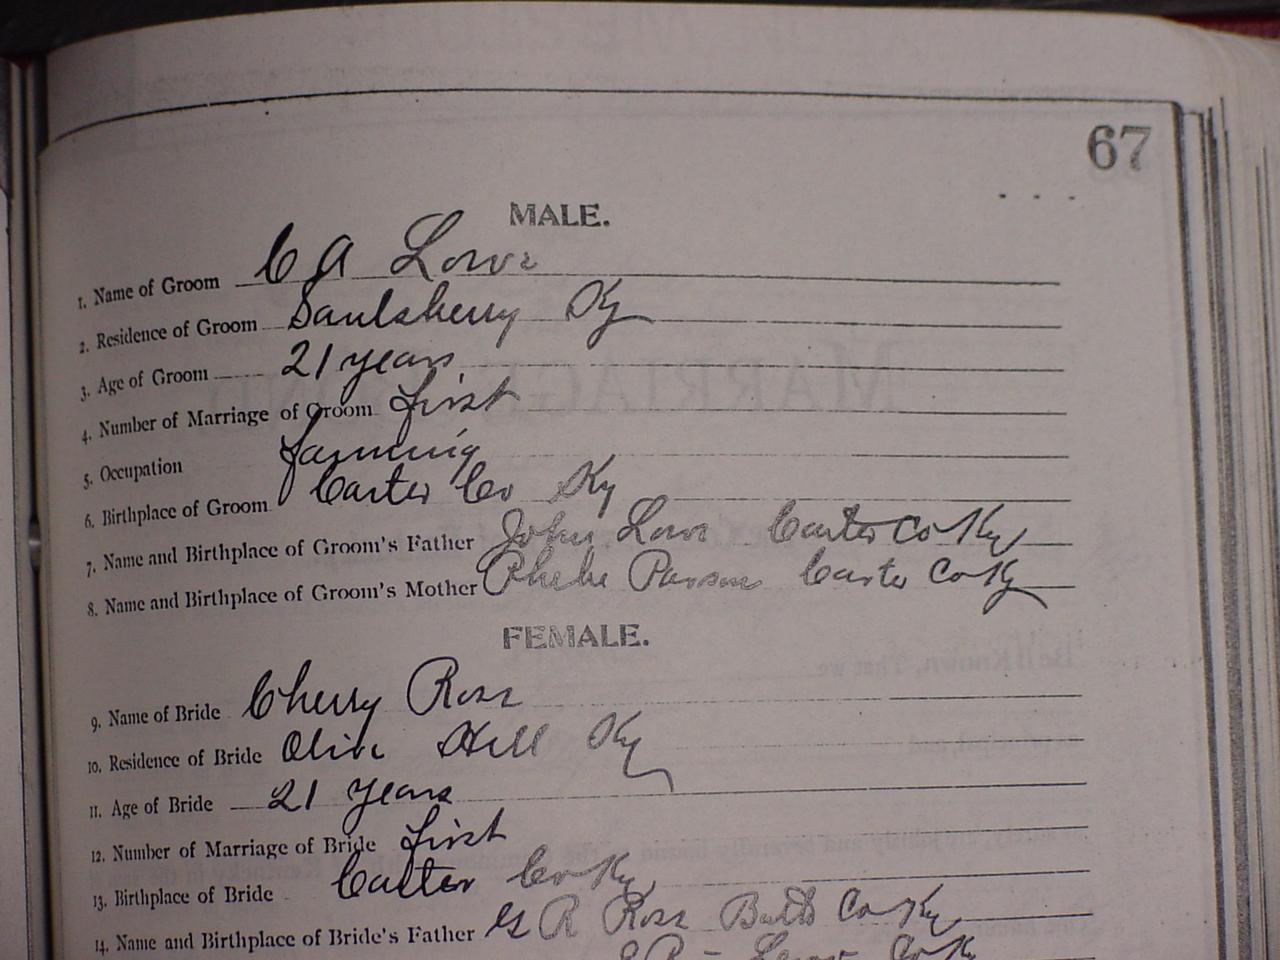 67
MALE.
1. Name of Groom C A Lowe
2. Residence of Groom Saulsberry Ky
3. Age of Groom 21 years
4. Number of Marriage of Groom first
5. Occupation farming
6. Birthplace of Groom Carter Co Ky
7. Name and Birthplace of Groom's Father John Lowe Carter Co Ky
8. Name and Birthplace of Groom's Mother Phebe Parsons Carter Co Ky
FEMALE.
9. Name of Bride Cherry Rose
10. Residence of Bride Olive Hill Ky
11. Age of Bride 21 years
12. Number of Marriage of Bride first
13. Birthplace of Bride Carter Co Ky
14. Name and Birthplace of Bride's Father G R Rose Co Ky